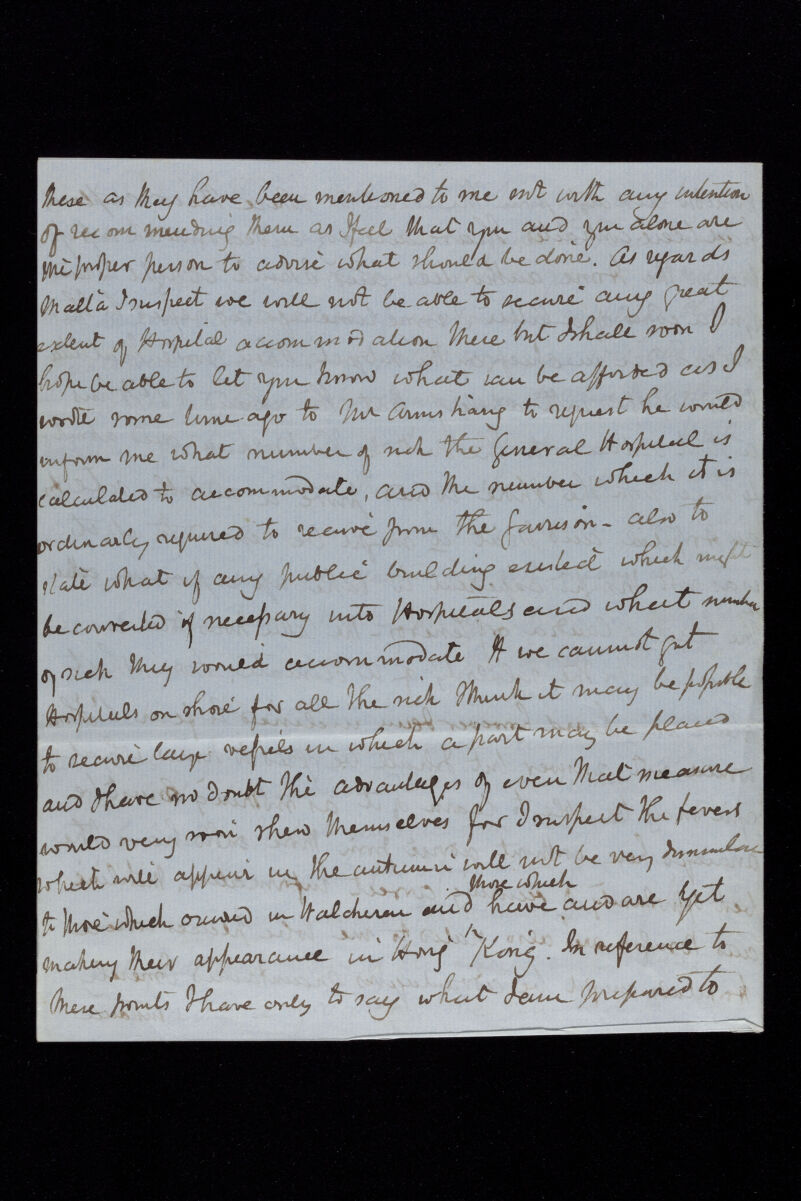 these as they have been mentioned to me not with any intention
of recommending them as I feel that you and you alone are
the proper person to advise what should be done. As regards
Malta I suspect we will not be able to secure any great
extent of Hospital accommodation there but I shall soon I
hope be able to let you know what can be afforded as I
wrote some time ago to Mr Armstrong to request he would
inform me what number of sick the General Hospital is
calculated to accommodate, and the number which it is
ordinarily required to receive from the Garrison - also to
state what if any public building existed which might
be converted if necessary into Hospitals and what number
of sick they would accommodate If we cannot get
Hospitals on shore for all the sick I think it may be possible
to secure large vessels in which a part may be placed
and I have no doubt the advantages of even that measure
would very soon shew themselves for I suspect the fevers
which will appear in the autumn will not be very dissimilar
to those which occurred in Walcheren and those which have and are yet
making their appearance in Hong Kong. In reference to
these points I have only to say what I am prepared to